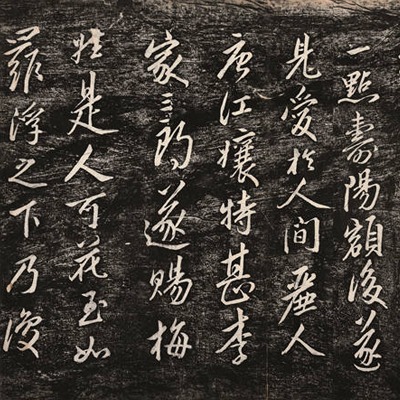 一點壽陽額後遂
見愛於人間麗人
唐江孃特甚李
家三郎遂賜梅
姓是人可花至如
羅浮之下乃復